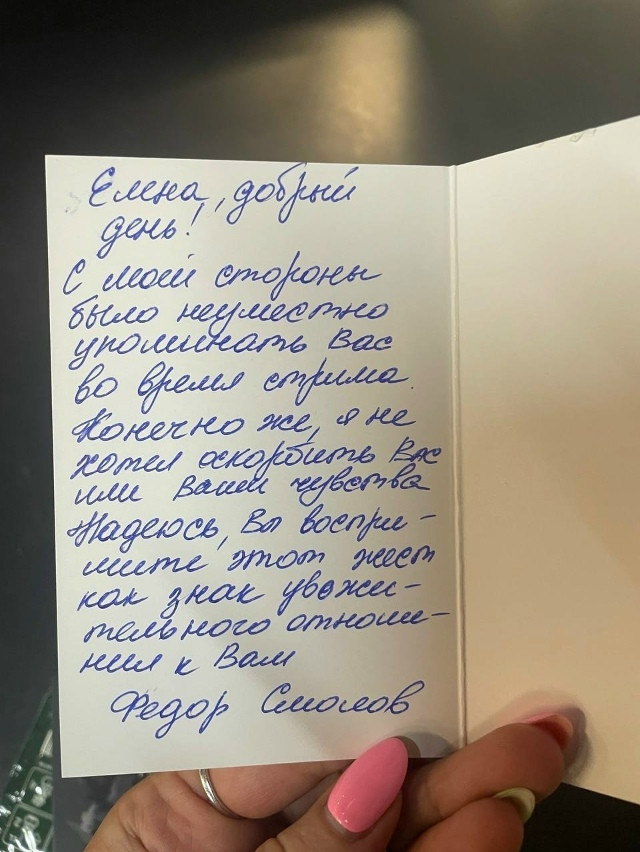 Елена, добрый
день!
С моей стороны
было неуместно
упоминать Вас
во время стрима.
Конечно же, я не
хотел оскорбить Вас
или Ваши чувства
Надеюсь, Вы воспри-
мите этот жест
как знак уважи-
тельного отноше-
ния к Вам
Федор Смолов